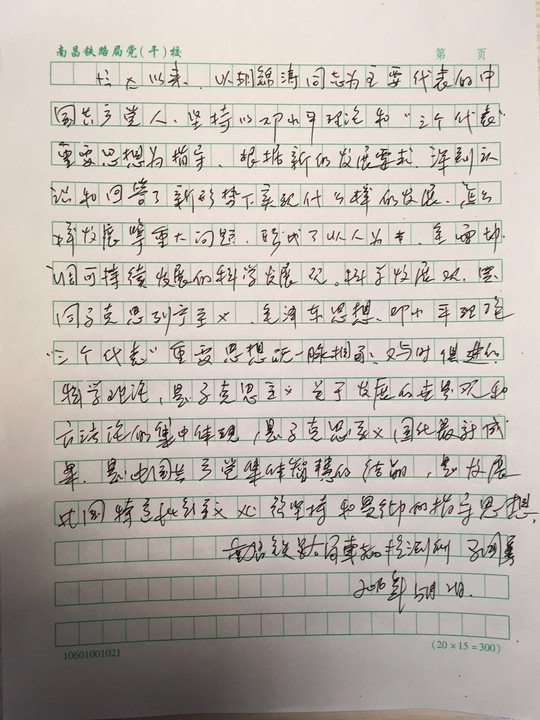 南昌铁路局党(干)校
第 页
十六大以来,以胡锦涛同志为主要代表的中
国共产党人,坚持以邓小平理论和“三个代表”
重要思想为指导,根据新的发展要求,深刻认
识和回答了新形势下实现什么样的发展、怎么
样发展等重大问题,形成了以人为本、全面协
调可持续发展的科学发展观。科学发展观,是
同马克思列宁主义、毛泽东思想、邓小平理论
“三个代表”重要思想既一脉相承又与时俱进的
科学理论,是马克思主义关于发展的世界观和
方法论的集中体现,是马克思主义中国化最新成
果,是中国共产党集体智慧的结晶,是发展
中国特色社会主义必须坚持和贯彻的指导思想。
南昌铁路局车辆检测所
2016年5月2日.
10601001021
(20×15=300)